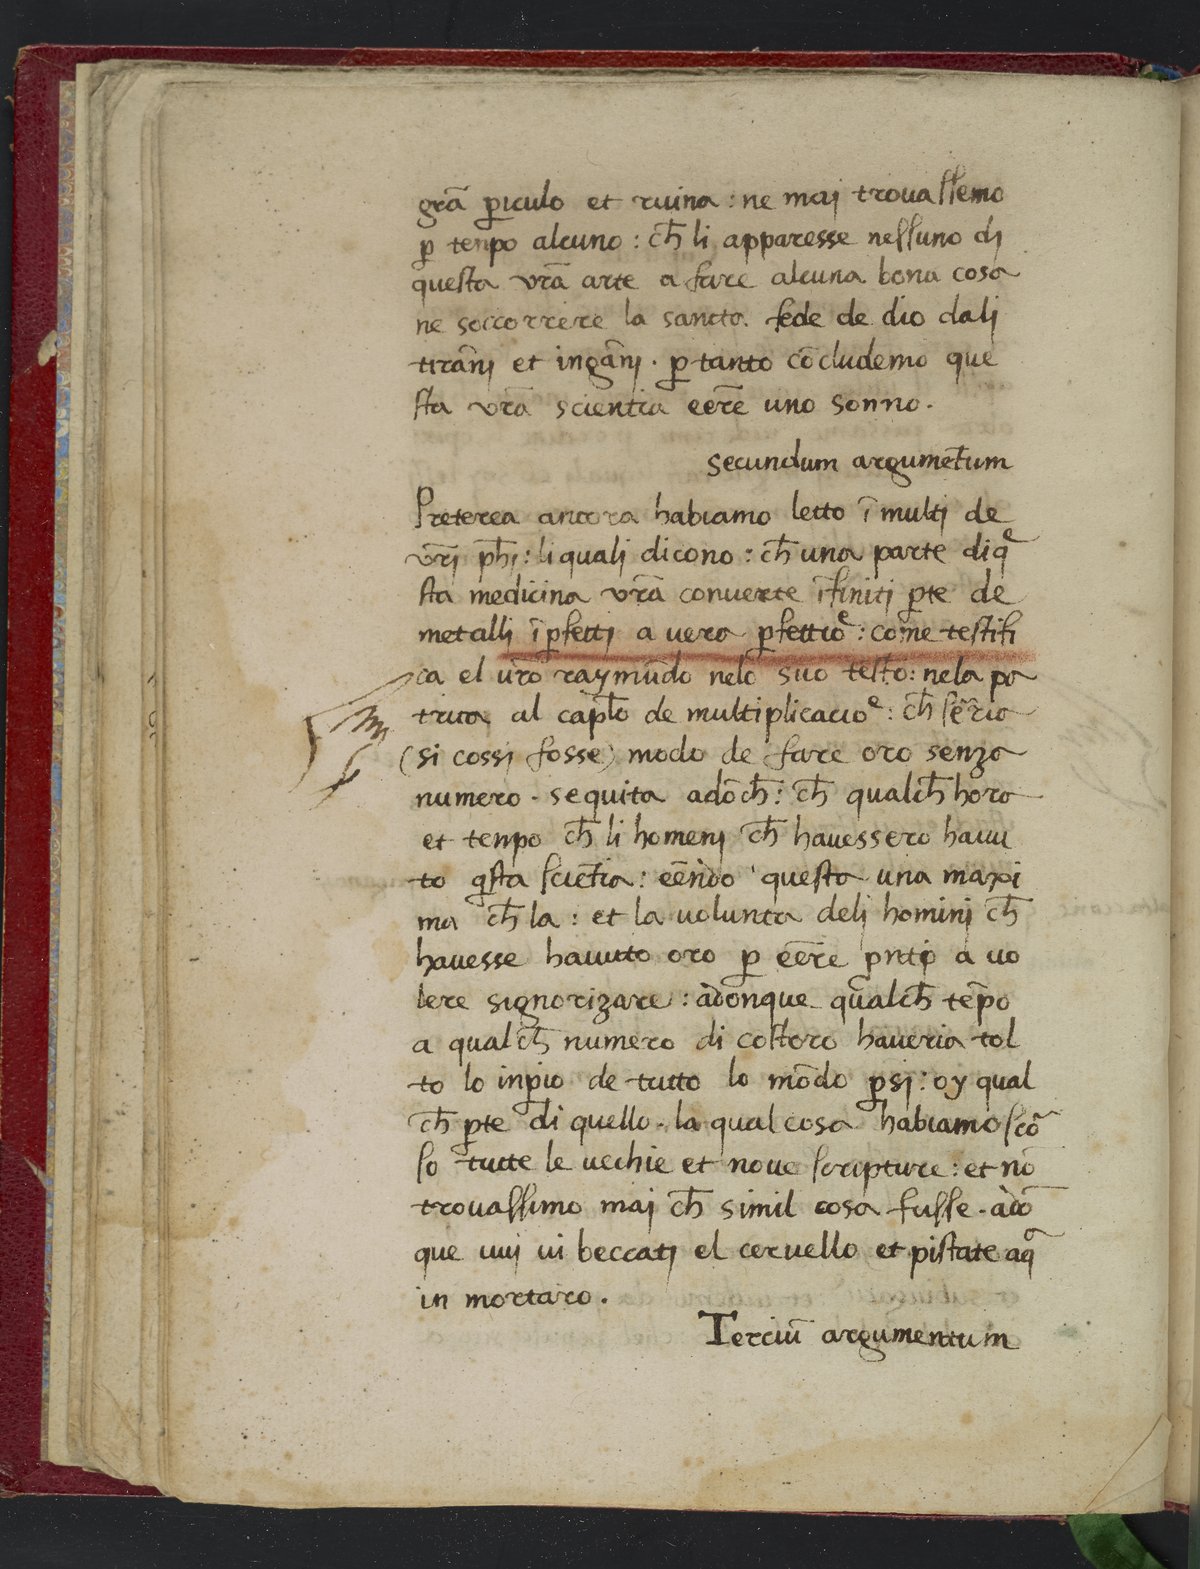 grā ꝑiculo et ruina : ne maj trouassemo
ꝑ tenpo alcuno : ch̄ li apparesse nessuno di
questa vr̄a arte a fare alcuna bona cosa
ne soccorrere la sancta fede de dio dalj
tirān̄j et ingān̄j . ꝑ tanto cōcludemo que
sta vr̄a scientia eēre uno sonno .
secundum argumēt̄um
Preterea ancora habiamo letto ī multj de
vr̄j ph̄j : li qualj dicono : ch̄ una parte di qᵉ
sta medicina vr̄a conuerte īfinitj ꝑte de
metallj īꝑfettj a uera ꝑfettioᵉ : come testifi
ca el ur̄o raymūdo nelo suo testo : nela pa
trica al capl̄o de multiplicacioᵉ : ch̄ sēria
(si cossj fosse) modo de fare oro senza
numero . sequita adōch̄ : ch̄ qualch̄ hora
et tenpo ch̄ li homenj ch̄ hauessero hauu
to qsta sciētia : eēndo questa una maxi
ma ch̄ la : et la uolunta delj hominj ch̄
hauesse hauuto oro ꝑ eēre pntj a uo
lere signorizare : adonque qualch̄ tēpo
a qualch̄ numero di costoro haueria tol
to lo inꝑio de tutto lo mōdo ꝑsj : oy qual
ch̄ ꝑte di quello . la qual cosa habiamo scō
so tutte le uechie et noue scripture : et nō
trouassimo maj ch̄ simil cosa fusse . adō
que uuj ui beccatj el ceruello et pistate aqᵃ
in mortaro .
Terciū argumentum